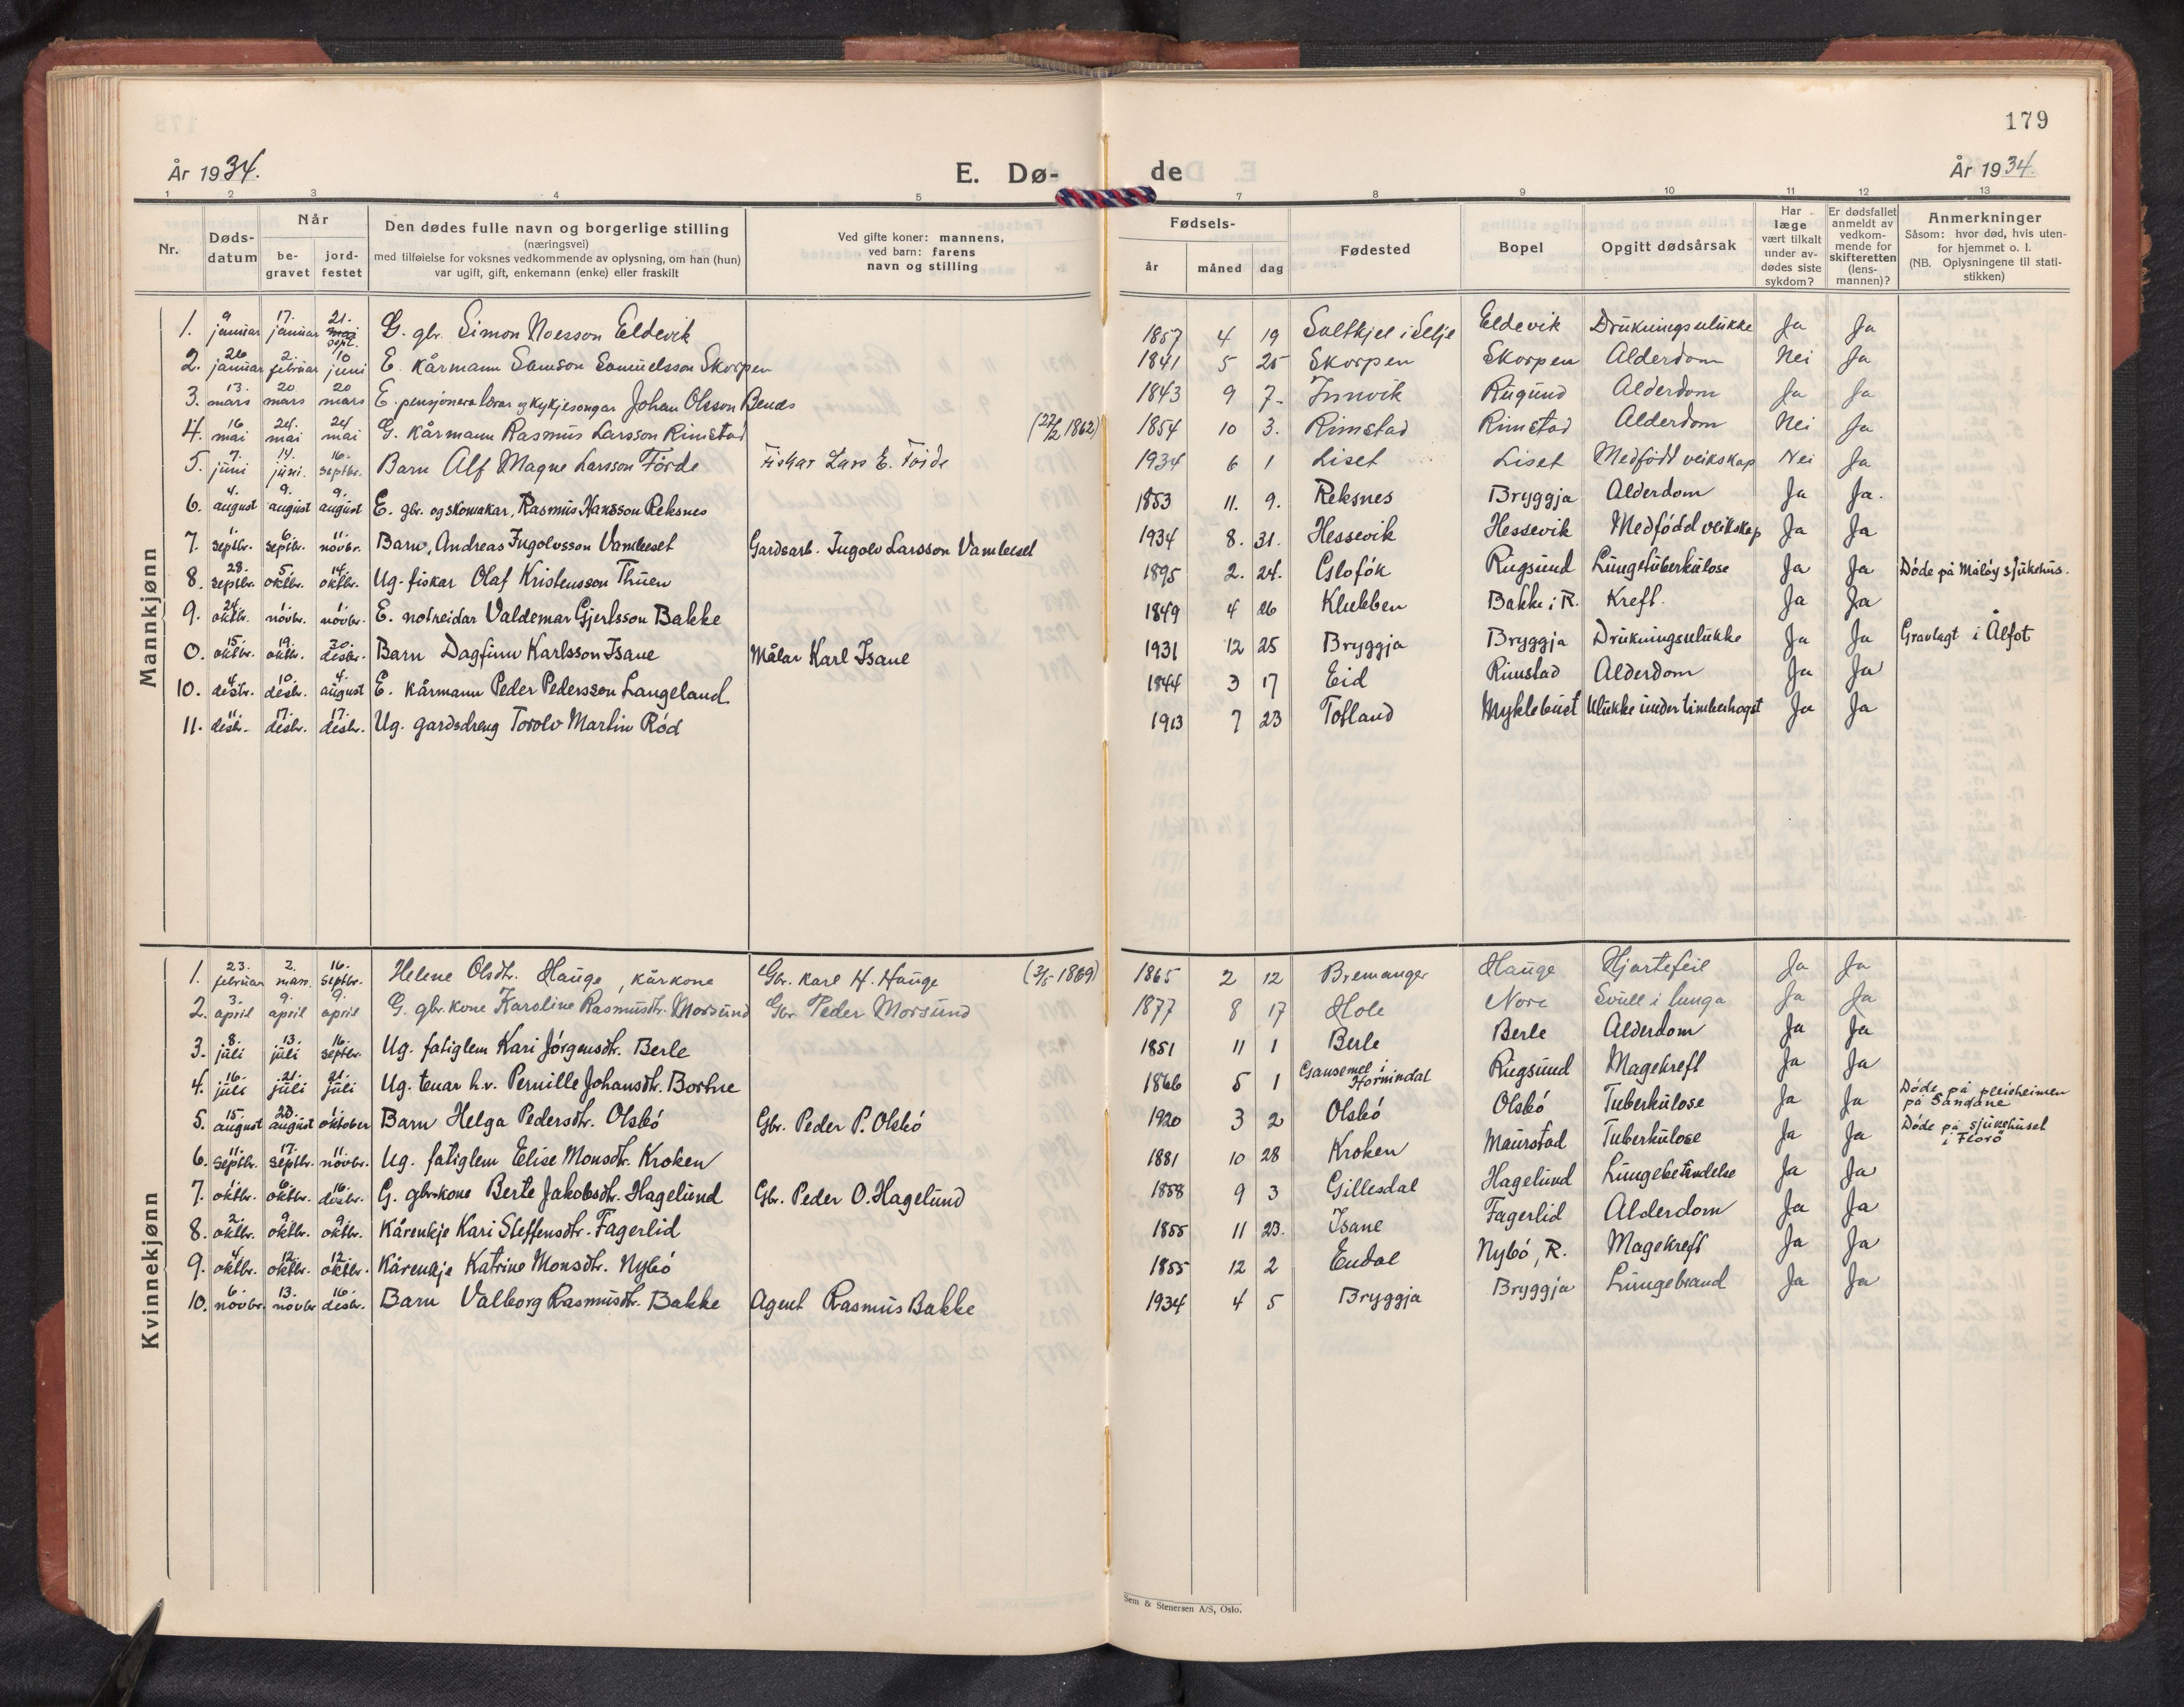 179
År 1934.
E. Dø-
de
År 1934.
1 2 3 4 5 7 8 9 10 11 12 13
Nr.
Døds-
datum
Når
be-
gravet
jord-
festet
Den dødes fulle navn og borgerlige stilling
(næringsvei)
med tilføielse for voksnes vedkommende av oplysning, om han (hun)
var ugift, gift, enkemann (enke) eller fraskilt
Ved gifte koner: mannens,
ved barn: farens
navn og stilling
Fødsels-
år
måned
dag
Fødested
Bopel
Opgitt dødsårsak
Har
læge
vært tilkalt
under av-
dødes siste
sykdom?
Er dødsfallet
anmeldt av
vedkom-
mende for
skifteretten
(lens-
mannen)?
Anmerkninger
Såsom: hvor død, hvis uten-
for hjemmet o. l.
(NB. Oplysningene til stati-
stikken)
Mannkjønn
1. 9 januar 17. januar 21. mai sept. G. gbr. Simon Moesson Eldevik 1857 4 19 Saltkjel i Selje Eldevik Drukningsulukke Ja Ja
2. 26 januar 2. februar 10 juni E. kårmann Samson Samuelsson Skorpen 1841 5 25 Skorpen Skorpen Alderdom Nei Ja
3. 13. mars 20 mars 20 mars E. pensjonera lærar og kykjesongar Johan Olsson Bendes 1843 9 7- Innvik Rugund Alderdom Ja Ja
4. 16 mai 24. mai 24 mai G. kårmann Rasmus Larsson Rimstad (22/2 1862) 1854 10 3. Rimstad Rimstad Alderdom Nei Ja
5. 7. juni 14. juni. 16. septbr. Barn Alf Magne Larsson Förde Fiskar Lars E. Förde 1934 6 1 Liset Liset Medfödt veikskap Nei Ja
6. 4. august 9. august 9. august E. gbr. og skomakar, Rasmus Hansson Reksnes 1853 11. 9. Reksnes Bryggja Alderdom Ja Ja.
7. 1. septbr. 6. septbr. 11. novbr. Barn, Andreas Ingolvsson Vamleset Gardsarb. Ingolv Larsson Vamleset 1934 8. 31. Hessevik Hessevik Medfödd veikskap Ja Ja
8. 28. septbr. 5. oktbr. 14. oktbr. Ug. fiskar Olaf Kristensson Thuen 1895 2. 24. Oslofók Rugsund Lungetuberkulose Ja Ja Döde på Måløy sjukehus.
9. 24 oktbr. 1 novbr. 1 novbr. E. notreidar Valdemar Gjertsson Bakke 1849 4 26 Klubben Bakke i R. Kreft. Ja Ja
0. 15. oktbr. 19. oktbr. 30. desbr. Barn Dagfinn Karlsson Isane Målar Karl Isane 1931 12 25 Bryggja Bryggja Drukningsulukke Ja Ja Gravlagt i Ålfot
10. 4. desbr. 10. desbr. 4. august E. kårmann Peder Pedersson Langeland. 1844 3 17 Eid Rimstad Alderdom Ja Ja
11. 11. desbr. 17. desbr. 17. desbr. Ug. gardsdreng Torolv Martin Röd 1913 7 23 Totland Myklebust Ulukke under timberhogst Ja Ja
Kvinnekjønn
1. 23. februar 2. mars. 16. septbr. Helene Olsdtr. Hauge, kårkone Gbr. Karl H. Hauge (3/5-1869) 1865 2 12 Bremanger Hauge Hjartefeil Ja Ja
2. 3. april 9. april 9. april G. gbr.kone Karoline Rasmusdtr. Morsund Gbr Peder Morsund 1877 8 17 Hole Nore Svull i lunga Ja Ja
3. 8. juli 13. juli 16. septbr. Ug. fatiglem Kari Jörgensdtr. Berle 1851 11 1 Berle Berle Alderdom Ja Ja
4. 16. juli 21. juli 21. juli Ug. tenar h.v. Pernille Johansdtr. Bortne 1866 5 1 Gausemel i Hornindal Rugsund Magekreft Ja Ja Döde på pleieheimen på Sandane
5. 15. august 23. august 1. oktober Barn Helga Pedersdtr. Olsbö Gbr. Peder P. Olsbö 1920 3 2 Olsbö Olsbö Tuberkulose Ja Ja Döde på sjukehuset i Florö
6. 11. septbr. 17. septbr. 11. novbr. Ug. fatiglem Elise Monsdtr. Kroken 1881 10 28 Kroken Maurstad Tuberkulose Ja Ja
7. 1. oktbr. 6. oktbr. 16. desbr. G. gbr.kone Berte Jakobsdtr. Hagelund Gbr. Peder O. Hagelund 1858 9 3 Gillesdal Hagelund Lungebetendelse Ja Ja
8. 2. oktbr. 9. oktbr. 9. oktbr. Kårenkje Kari Steffensdtr. Fagerlid 1855 11 23. Isane Fagerlid Alderdom Ja Ja
9. 4. oktbr. 12. oktbr. 12. oktbr. Kårenkje Katrine Monsdtr. Nybö 1855 12 2 Endal Nybö, R. Magekreft Ja Ja
10. 6. novbr. 13. novbr 16. desbr. Barn Valborg Rasmusdtr. Bakke Agent Rasmus Bakke 1934 4 5 Bryggja Bryggja Lungebrand Ja Ja
Sem & Stenersen A/S, Oslo.